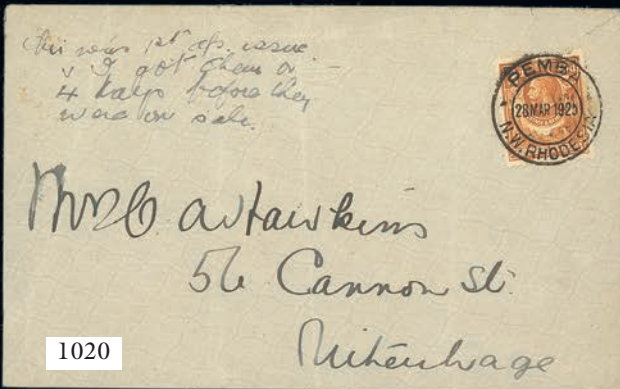 This was 1st of issue
& I got them on
4 days before they
were on sale.
PEMBA
28 MAR 1925
N.W. RHODESIA
Mrs C A Hawkins
56 Cannon St.
Uitenhage
1020